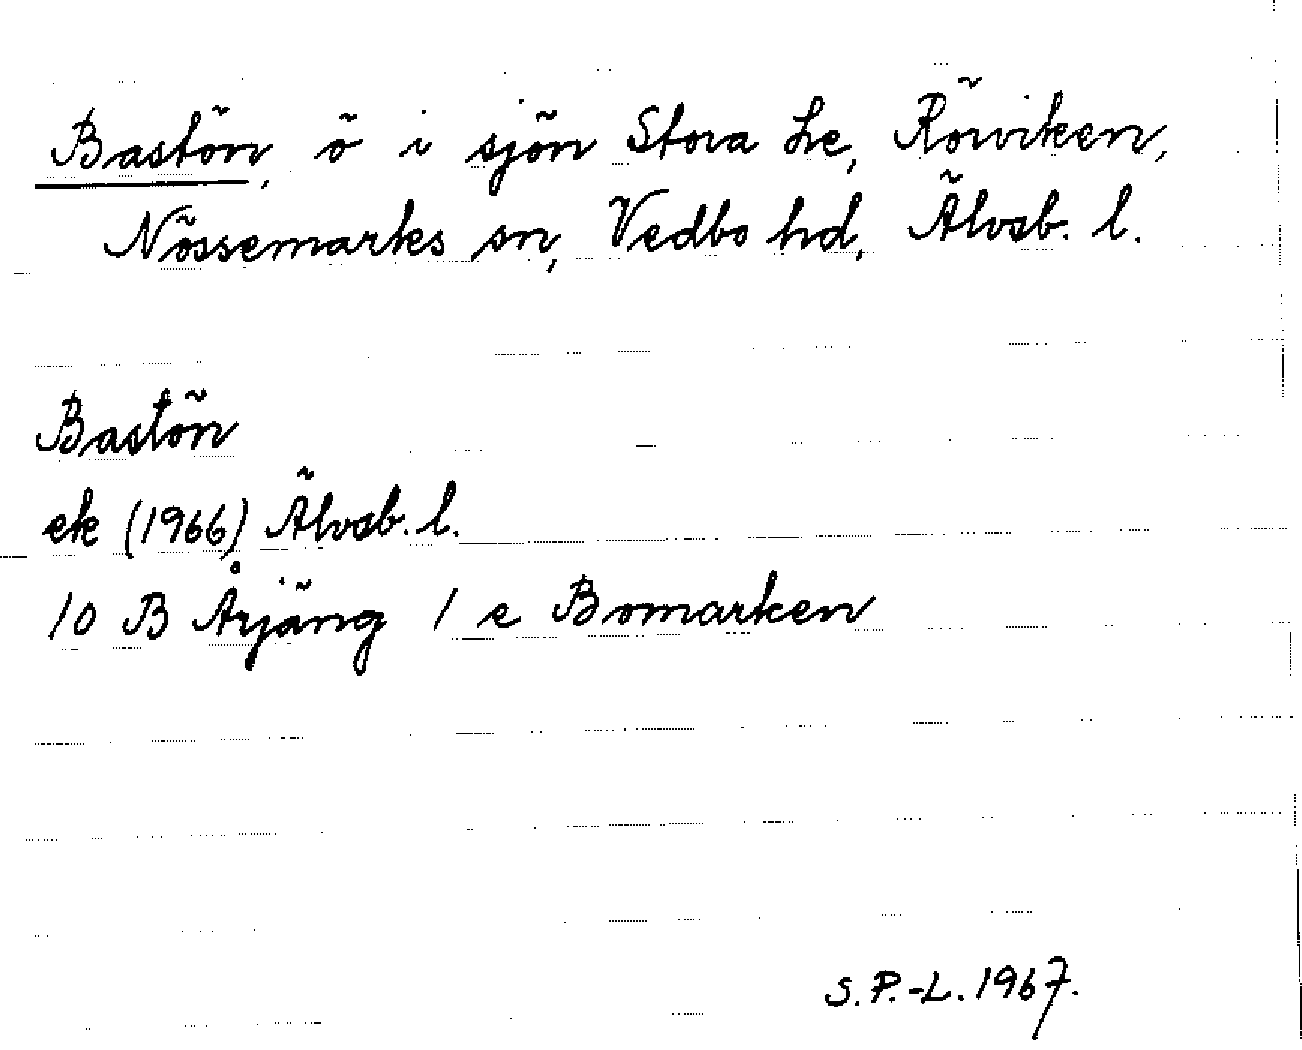 Bastön, ö i sjön Stora Le, Rörviken,
Nössemarks sn, Vedbo hd, Älvsb. l.
Bastön
ek (1966) Älvsb. l.
10 B Årjäng 1 e Bomarken
S.P.-L. 1967.